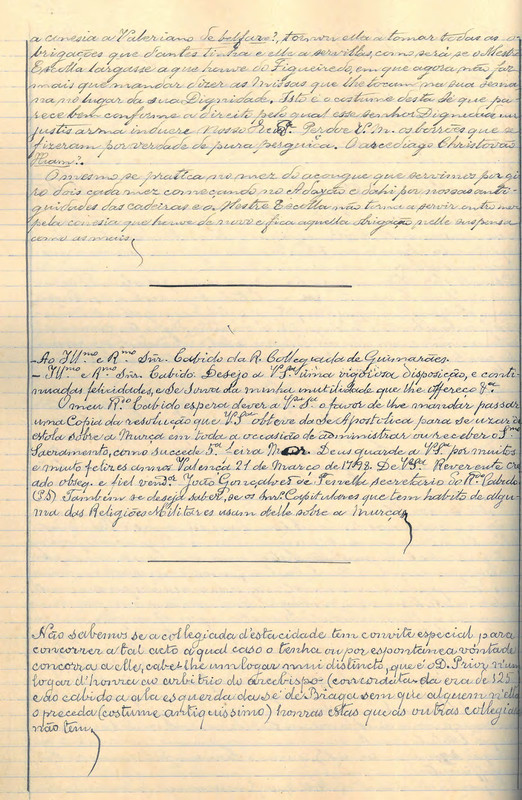 a conesia a Valeriano de belfar?, tornou ella a tomar todas as o
brigações que d'antes tinha e elle a servillas, como será se o Mestre
Escolla largasse a que houve do Figueiredo, em que agora não faz
mais que mandar dizer as Missas que lhe tocam na sua sema
na no lugar da sua Dignidade. Isto é o costume desta sé que pa
rece bem conforme a direito pelo qual esse senhor Dignidade in
justis arma induere Nosso Perdoe V.M. as borrões que se
fizeram por verdade de pura preguiça. O arcediago Christovão
O mesmo se pratica no mez do açougue que servimos por gi
ro dois cada mez começando no Adayão e dahi por nossas anti-
guidades das cadeiras e o Mestre Escolla não torna a servir outro mez
pela conesia que houve de novo e fica aquella obrigação nelle suspensa
como as mais
- Ao Ill.mo e R.mo Sñr. Cabido da R. Collegiada de Guimarães.
- Ill.mo e R.mo Sñr. Cabido. Desejo a V.S.as uma vigorosa disposição, e conti-
nuadas felicidades, e se sirva da minha inutilidade que lhe offereço &.a
O meu R.do Cabido espera dever a V.as S.as o favor de lhe mandar passar
uma Copia da resolução que V.S.as obteve da Se Apostolica para se uzar de
estola sobre a Murça em toda a occasião de administrar ou receber o S.mo
Sacramento, como succede 5.a feira Deus guarde a V.S.as por muitos
e muito felizes annos Valença 21 de Março de 1798. De V.S.as Reverente cre
ado obseq. e fiel ven.dor João Gonçalves de secretario do R.do Cabido
Também se deseja saber, se os Capitulares que tem habito de algu-
ma das Religiões Militares usam delle sobre a Murça
Não sabemos se a collegiada d'esta cidade tem convite especial para
concorrer a tal acto a qual caso o tenha ou por espontanea vontade
concorra a elle, cabe-lhe um logar mui distincto, que é o D. Prior n'um
logar d'honra ao arbitrio do arcebispo (concordata da era de 125
e ao cabido a ala esquerda da sé de Braga sem que alguem n'ella
o preceda (costume antiquissimo) honras estas que as outras collegiadas
não tem